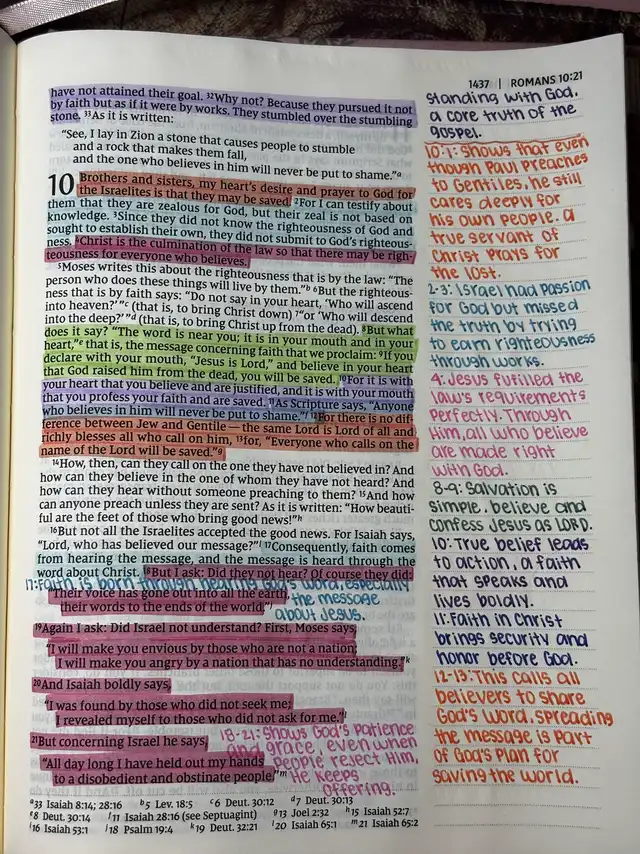 1437 | ROMANS 10:21
have not attained their goal. 32Why not? Because they pursued it not
by faith but as if it were by works. They stumbled over the stumbling
stone. 33As it is written:
“See, I lay in Zion a stone that causes people to stumble
and a rock that makes them fall,
and the one who believes in him will never be put to shame.”a
10 Brothers and sisters, my heart’s desire and prayer to God for
the Israelites is that they may be saved. 2For I can testify about
them that they are zealous for God, but their zeal is not based on
knowledge. 3Since they did not know the righteousness of God and
sought to establish their own, they did not submit to God’s righteous-
ness. 4Christ is the culmination of the law so that there may be righ-
teousness for everyone who believes.
5Moses writes this about the righteousness that is by the law: “The
person who does these things will live by them.”b 6But the righteous-
ness that is by faith says: “Do not say in your heart, ‘Who will ascend
into heaven?’”c (that is, to bring Christ down) 7“or ‘Who will descend
into the deep?’”d (that is, to bring Christ up from the dead). 8But what
does it say? “The word is near you; it is in your mouth and in your
heart,”e that is, the message concerning faith that we proclaim: 9If you
declare with your mouth, “Jesus is Lord,” and believe in your heart
that God raised him from the dead, you will be saved. 10For it is with
your heart that you believe and are justified, and it is with your mouth
that you profess your faith and are saved. 11As Scripture says, “Anyone
who believes in him will never be put to shame.”f 12For there is no dif-
ference between Jew and Gentile—the same Lord is Lord of all and
richly blesses all who call on him, 13for, “Everyone who calls on the
name of the Lord will be saved.”g
14How, then, can they call on the one they have not believed in? And
how can they believe in the one of whom they have not heard? And
how can they hear without someone preaching to them? 15And how
can anyone preach unless they are sent? As it is written: “How beauti-
ful are the feet of those who bring good news!”h
16But not all the Israelites accepted the good news. For Isaiah says,
“Lord, who has believed our message?”i 17Consequently, faith comes
from hearing the message, and the message is heard through the
word about Christ. 18But I ask: Did they not hear? Of course they did:
17: Faith is born through hearing God's word, especially
the message
about Jesus.
“Their voice has gone out into all the earth,
their words to the ends of the world.”j
19Again I ask: Did Israel not understand? First, Moses says,
“I will make you envious by those who are not a nation;
I will make you angry by a nation that has no understanding.”k
20And Isaiah boldly says,
“I was found by those who did not seek me;
I revealed myself to those who did not ask for me.”l
21But concerning Israel he says,
“All day long I have held out my hands
to a disobedient and obstinate people.”m
18-21: Shows God's patience
and grace, even when
people reject Him,
He keeps
offering.
a33 Isaiah 8:14; 28:16 b5 Lev. 18:5 c6 Deut. 30:12 d7 Deut. 30:13
e8 Deut. 30:14 f11 Isaiah 28:16 (see Septuagint) g13 Joel 2:32 h15 Isaiah 52:7
i16 Isaiah 53:1 j18 Psalm 19:4 k19 Deut. 32:21 l20 Isaiah 65:1 m21 Isaiah 65:2
standing with God,
a core truth of the
gospel.
10:1: Shows that even
though Paul preaches
to Gentiles, he still
cares deeply for
his own people. a
true servant of
Christ prays for
the lost.
2-3: Israel had passion
for God but missed
the truth by trying
to earn righteousness
through works.
4: Jesus fufilled the
law's requirements
perfectly. Through
Him, all who believe
are made right
with God.
8-9: Salvation is
simple, believe and
confess Jesus as LORD.
10: True belief leads
to action, a faith
that speaks and
lives boldly.
11: Faith in Christ
brings security and
honor before God.
12-13: This calls all
believers to share
God's word, spreading
the message is part
of God's plan for
saving the world.